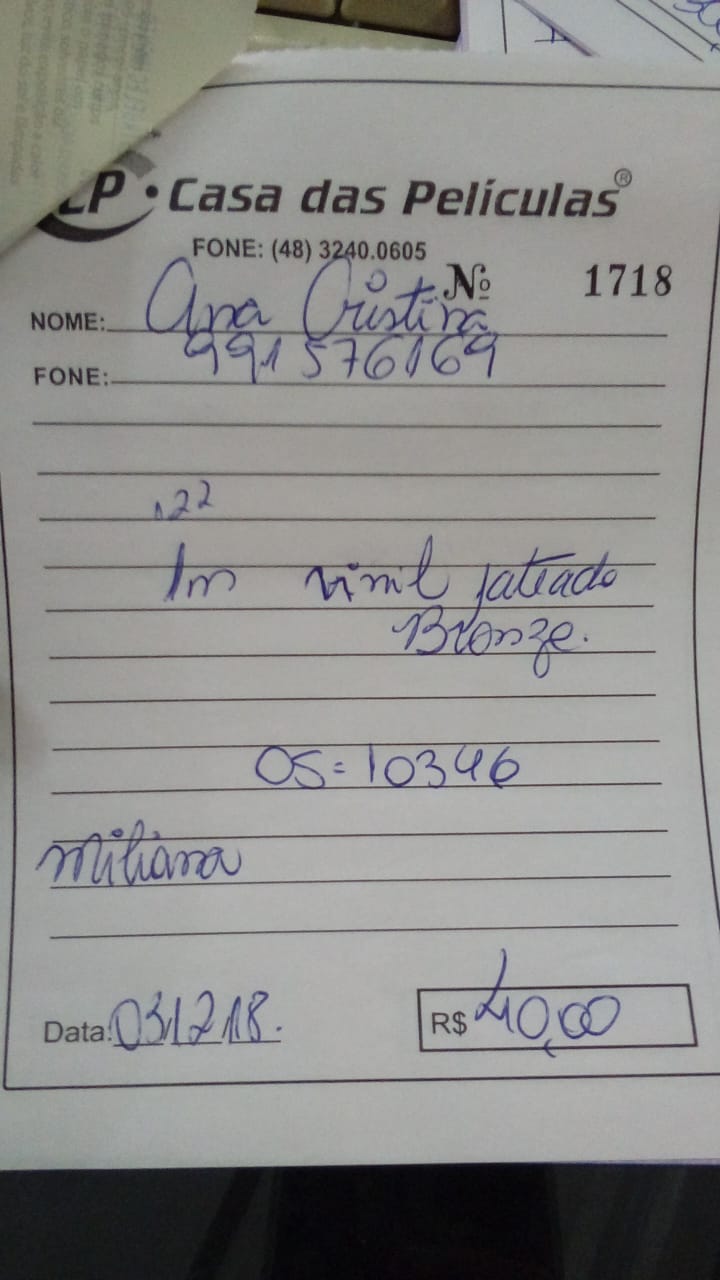 CP • Casa das Películas®
FONE: (48) 3240.0605
Nº 1718
NOME: Ana Cristina
FONE: 991576169
,22
1m vinil jateado
Bronze.
OS = 10346
Miliana
Data: 03/12/18.
R$ 40,00